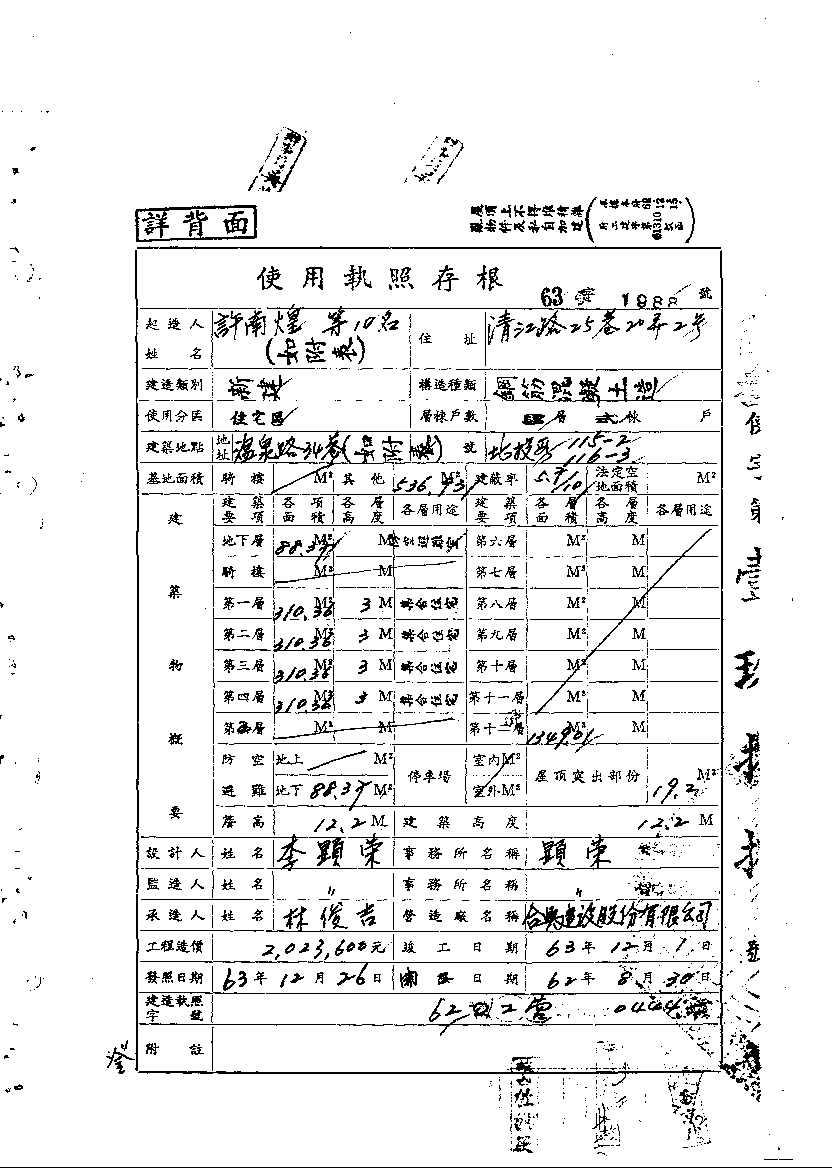 詳背面
屋頂上不得堆積雜
物件及私自加建
使用執照存根
63 字 1988 號
起造人姓名 許南煌 等10名 (如附表) 住址 清江路25巷20弄2号
建造類別 新建 構造種類 鋼筋混凝土造
使用分區 住宅區 層棟戶數 層 棟 戶
建築地點 地址 溫泉路34巷(如附表) 號 北投段 115-2 116-3
基地面積 騎樓 M² 其他 536.93 M² 建蔽率 5.7/10 法定空地面積 M²
建築物概要
建築要項 各項面積 各層高度 各層用途 建築要項 各層面積 各層高度 各層用途
地下層 88.37 M² M 第六層 M² M
騎樓 M² M 第七層 M² M
第一層 310.36 M² 3 M 集合住宅 第八層 M² M
第二層 310.36 M² 3 M 集合住宅 第九層 M² M
第三層 310.36 M² 3 M 集合住宅 第十層 M² M
第四層 310.36 M² 3 M 集合住宅 第十一層 M² M
第五層 M² M 第十二層 1349.01 M² M
防空避難 地上 M² 停車場 室內 M² 屋頂突出部份 19.2 M²
地下 88.37 M² 室外 M²
簷高 12.2 M 建築高度 12.2 M
設計人 姓名 李顯榮 事務所名稱 顯榮
監造人 姓名 〃 事務所名稱 〃
承造人 姓名 林俊吉 營造廠名稱 合興建設股份有限公司
工程造價 2,023,600元 竣工日期 63年12月1日
發照日期 63年12月26日 開工日期 62年8月30日
建造執照字號 62 0444 號
附註